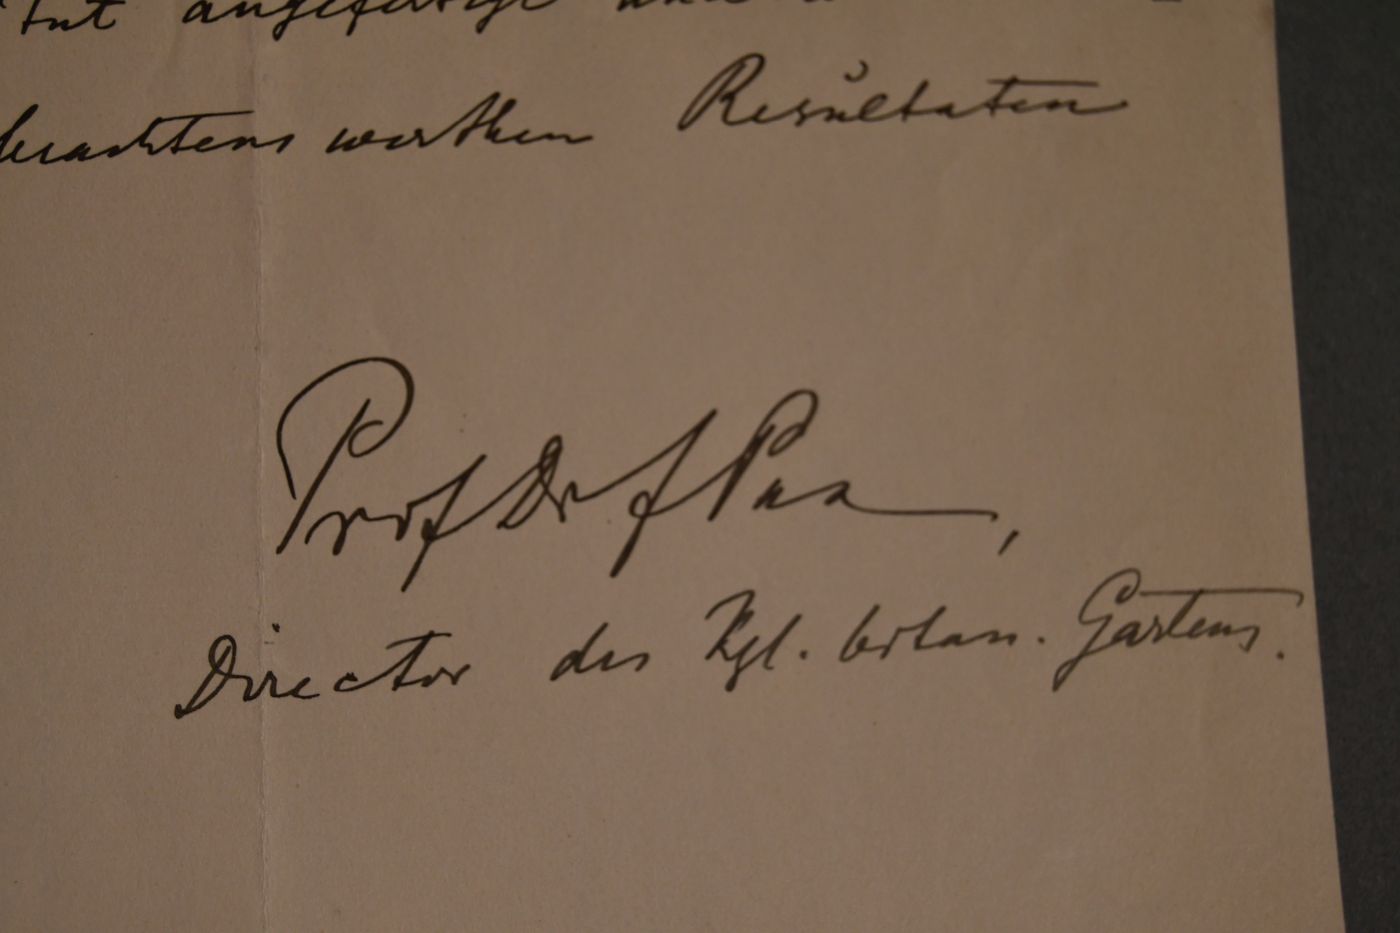 angefertigt
werthen Resultaten
Prof Dr F Pax,
Director des Kgl. botan. Gartens.